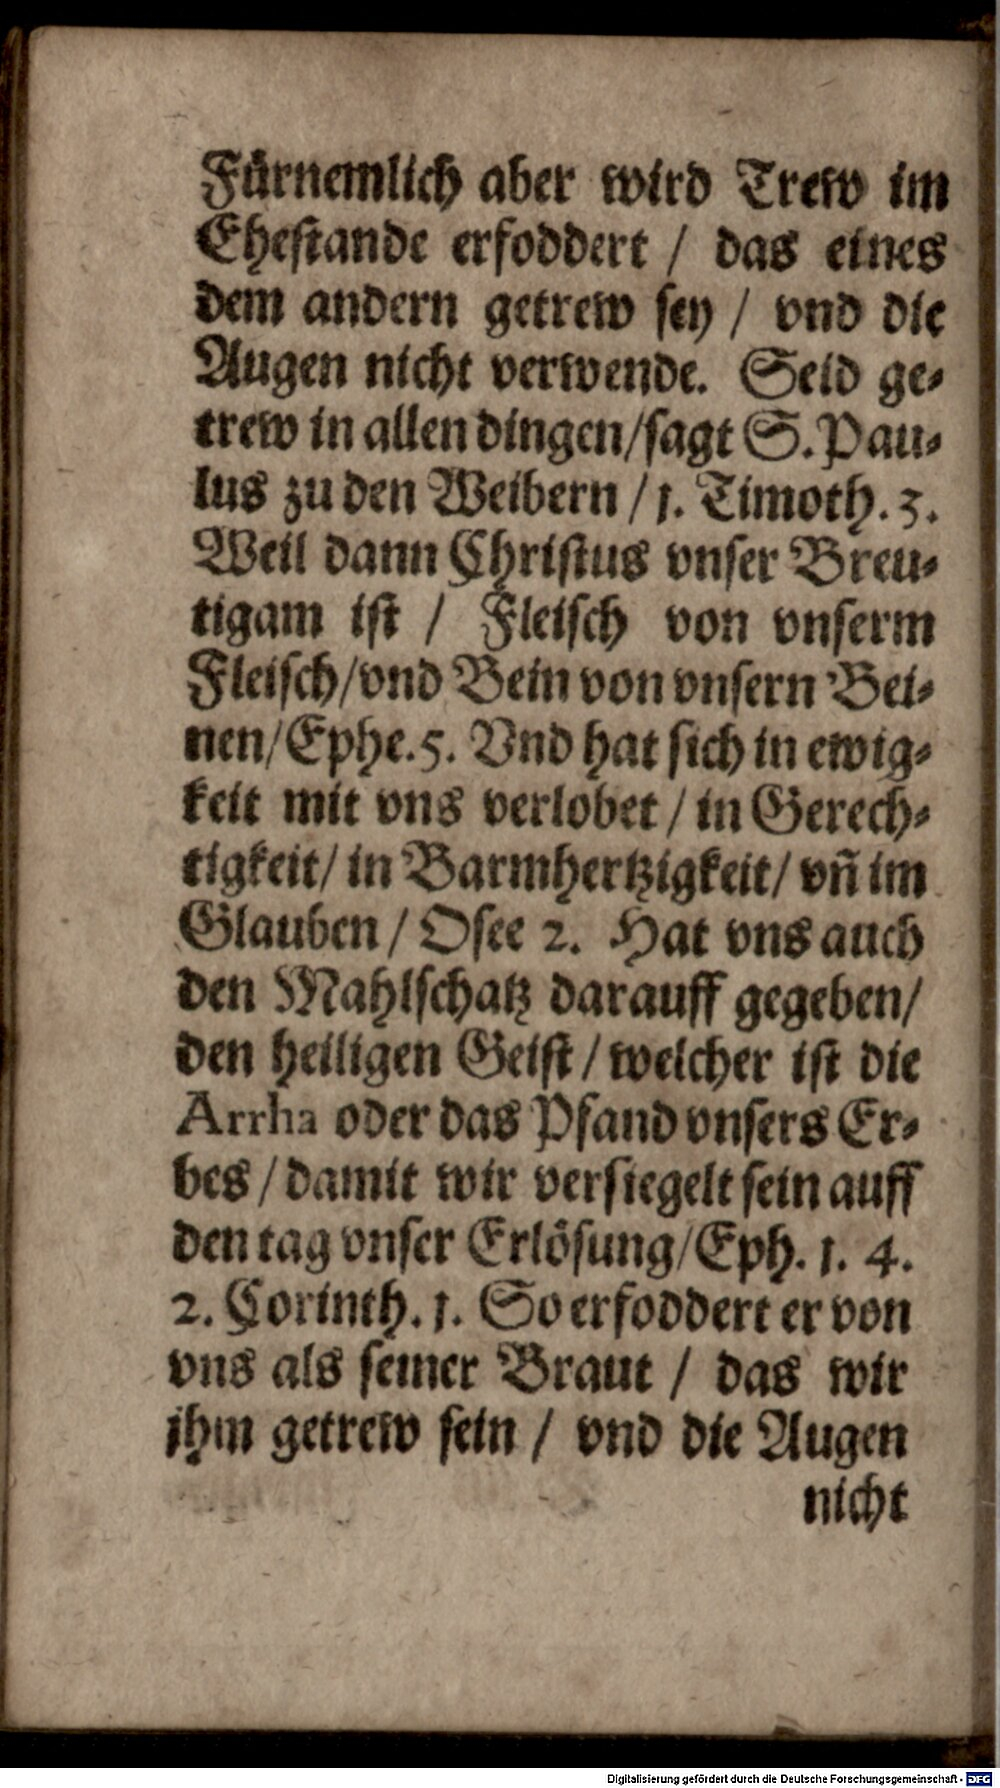 Fürnemlich aber wird Trew im
Ehestande erfoddert / das eines
dem andern getrew sey / vnd die
Augen nicht verwende. Seid ge-
trew in allen dingen/sagt S. Pau-
lus zu den Weibern / 1. Timoth. 3.
Weil dann Christus vnser Breu-
tigam ist / Fleisch von vnserm
Fleisch/vnd Bein von vnsern Bei-
nen/Ephe. 5. Vnd hat sich in ewig-
keit mit vns verlobet / in Gerech-
tigkeit/ in Barmhertzigkeit/ vñ im
Glauben / Osee 2. Hat vns auch
den Mahlschatz darauff gegeben/
den heiligen Geist / welcher ist die
Arrha oder das Pfand vnsers Er-
bes / damit wir versiegelt sein auff
den tag vnser Erlösung/Eph. 1. 4.
2. Corinth. 1. So erfoddert er von
vns als seiner Braut / das wir
jhm getrew sein / vnd die Augen
nicht
Digitalisierung gefördert durch die Deutsche Forschungsgemeinschaft - DFG